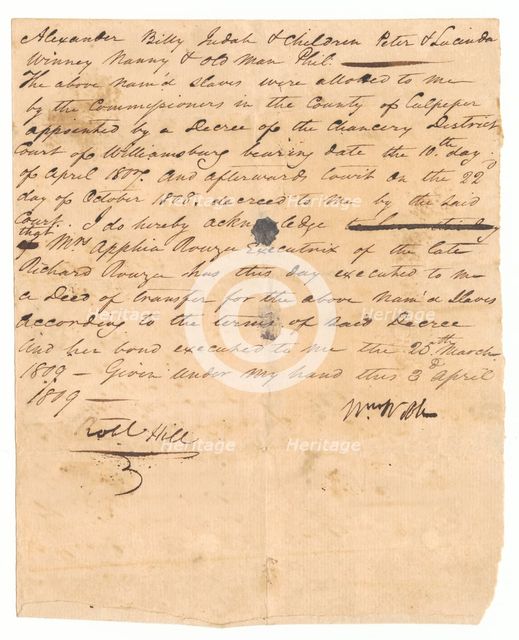 Alexander Billy Judah & Children Peter & Lucinda
Winney Nanny & old man Phil
The above nam'd slaves were allotted to me
by the Commissioners in the County of Culpeper
appointed by a Decree of the Chancery District
Court of Williamsburg bearing date the 10th day
of April 1807. And afterwards Court on the 22d
day of October 1808 decreed to me by the said
Court. I do hereby acknowledge
that Mrs Apphia Rouzee Executrix of the late
Richard Rouzee has this day executed to me
a Deed of transfer for the above nam'd Slaves
According to the terms of said Decree
And her bond executed to me the 20th March
1809 – Given under my hand this 3d April
1809 –
Wm Webb
Robt Hill
Heritage
Heritage
Heritage
Heritage
Heritage
Heritage